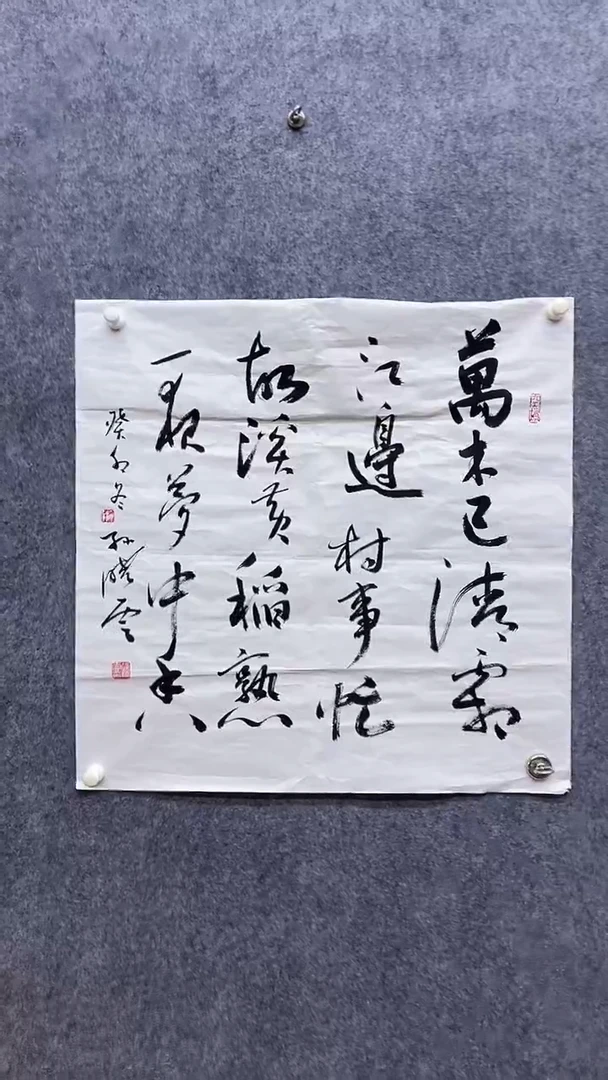 萬木已清霜
江邊村事忙
故溪黄稻熟
一夜夢中香
癸卯冬
孫曉雲